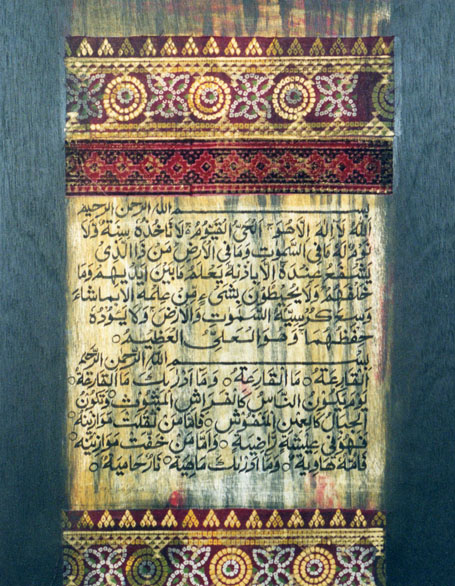 بسم الله الرحمن الرحيم
الله لا اله الا هو الحي القيوم لا تاخذه سنة ولا
نوم له ما في السموت وما في الارض من ذا الذى
يشفع عنده الا باذنه يعلم ما بين ايديهم وما
خلفهم ولا يحيطون بشىء من علمه الا بما شاء
وسع كرسيه السموت والارض ولا يئوده
حفظهما وهو العلي العظيم
بسم الله الرحمن الرحيم
القارعة ما القارعة وما ادريك ما القارعة
يوم يكون الناس كالفراش المبثوث وتكون
الجبال كالعهن المنفوش فاما من ثقلت موازينه
فهو في عيشة راضية واما من خفت موازينه
فامه هاوية وما ادريك ماهية نار حامية